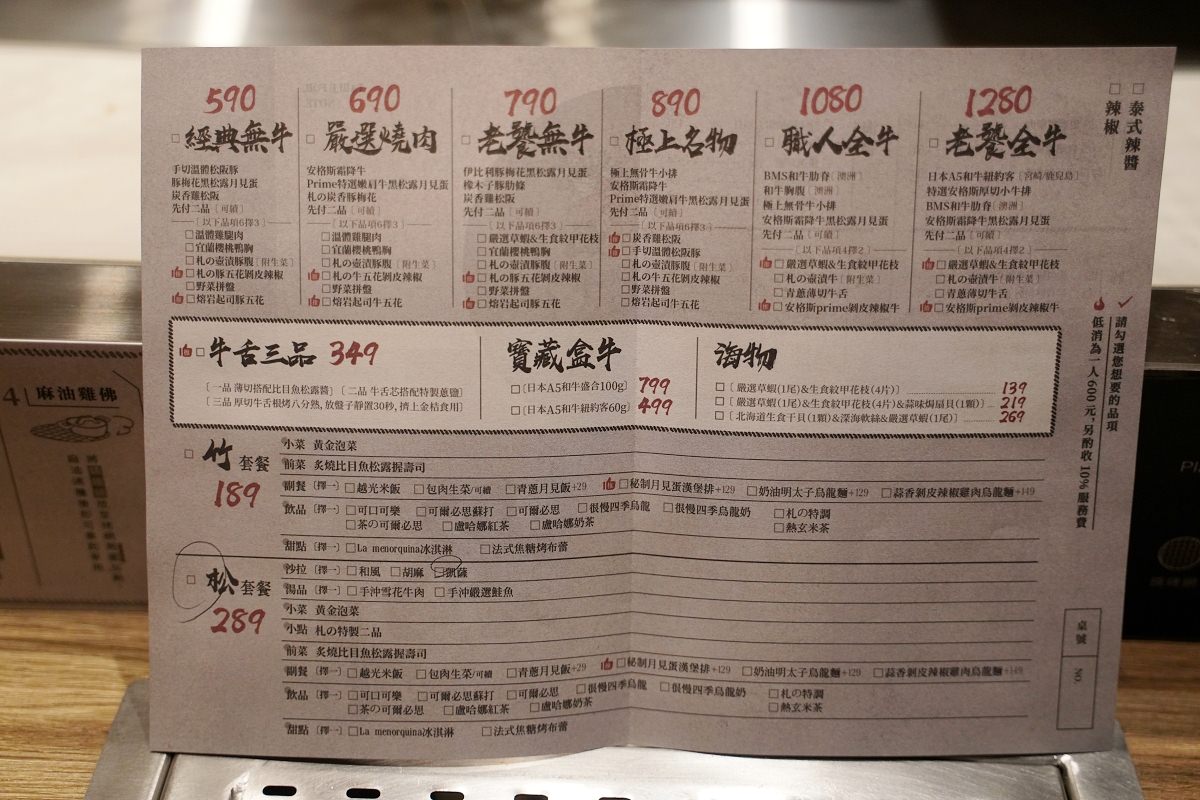 590
□經典無牛
手切溫體松阪豚
豚梅花黑松露月見蛋
炭香雞松阪
先付二品〔可續〕
〔以下品項6擇3〕
□溫體雞腿肉
□宜蘭櫻桃鴨胸
□札の壺漬豚腹〔附生菜〕
□札の豚五花剝皮辣椒
□野菜拼盤
□熔岩起司豚五花
690
□嚴選燒肉
安格斯霜降牛
Prime特選嫩肩牛黑松露月見蛋
札の炭香豚梅花
先付二品〔可續〕
〔以下品項6擇3〕
□溫體雞腿肉
□宜蘭櫻桃鴨胸
□札の壺漬豚腹〔附生菜〕
□札の牛五花剝皮辣椒
□野菜拼盤
□熔岩起司牛五花
790
□老饕無牛
伊比利豚梅花黑松露月見蛋
橡木子豚肋條
炭香雞松阪
先付二品〔可續〕
〔以下品項6擇3〕
□嚴選草蝦&生食紋甲花枝
□宜蘭櫻桃鴨胸
□札の壺漬豚腹〔附生菜〕
□札の豚五花剝皮辣椒
□野菜拼盤
□熔岩起司豚五花
890
□極上名物
極上無骨牛小排
安格斯霜降牛
Prime特選嫩肩牛黑松露月見蛋
先付二品〔可續〕
〔以下品項6擇3〕
□炭香雞松阪
□手切溫體松阪豚
□札の壺漬豚腹〔附生菜〕
□札の牛五花剝皮辣椒
□野菜拼盤
□熔岩起司牛五花
1080
□職人全牛
BMS和牛肋眘〔澳洲〕
和牛胸腹〔澳洲〕
極上無骨牛小排
安格斯霜降牛黑松露月見蛋
先付二品〔可續〕
〔以下品項4擇2〕
□嚴選草蝦&生食紋甲花枝
□札の壺漬牛〔附生菜〕
□青蔥薄切牛舌
□安格斯prime剝皮辣椒牛
1280
□老饕全牛
日本A5和牛紐約客〔宮崎/鹿兒島〕
特選安格斯厚切小牛排
BMS和牛肋眘〔澳洲〕
安格斯霜降牛黑松露月見蛋
先付二品〔可續〕
〔以下品項4擇2〕
□嚴選草蝦&生食紋甲花枝
□札の壺漬牛〔附生菜〕
□青蔥薄切牛舌
□安格斯prime剝皮辣椒牛
□泰式辣醬
□辣椒
請勾選您想要的品項
低消為一人600元,另酌收10%服務費
□牛舌三品 349
〔一品 薄切搭配比目魚松露醬〕〔二品 牛舌芯搭配特製蔥鹽〕
〔三品 厚切牛舌根烤八分熟,放盤子靜置30秒,擠上金桔食用〕
寶藏盒牛
□〔日本A5和牛盛合100g〕 799
□〔日本A5和牛紐約客60g〕 499
海物
□〔嚴選草蝦(1尾)&生食紋甲花枝(4片)〕 139
□〔嚴選草蝦(1尾)&生食紋甲花枝(4片)&蒜味焗扇貝(1顆)〕 219
□〔北海道生食干貝(1顆)&深海軟絲&嚴選草蝦(1尾)〕 269
□竹套餐
189
小菜 黃金泡菜
前菜 炙燒比目魚松露握壽司
副餐〔擇一〕□越光米飯 □包肉生菜/可續 □青蔥月見飯+29 □秘制月見蛋漢堡排+129 □奶油明太子烏龍麵+129 □蒜香剝皮辣椒雞肉烏龍麵+149
飲品〔擇一〕□可口可樂 □可爾必思蘇打 □可爾必思 □很慢四季烏龍 □很慢四季烏龍奶 □札の特調
□茶の可爾必思 □盧哈娜紅茶 □盧哈娜奶茶 □熱玄米茶
甜點〔擇一〕□La menorquina冰淇淋 □法式焦糖烤布蕾
□松套餐
289
沙拉〔擇一〕□和風 □胡麻 □凱薩
湯品〔擇一〕□手沖雪花牛肉 □手沖嚴選鮭魚
小菜 黃金泡菜
小點 札の特製二品
前菜 炙燒比目魚松露握壽司
副餐〔擇一〕□越光米飯 □包肉生菜/可續 □青蔥月見飯+29 □秘制月見蛋漢堡排+129 □奶油明太子烏龍麵+129 □蒜香剝皮辣椒雞肉烏龍麵+149
飲品〔擇一〕□可口可樂 □可爾必思蘇打 □可爾必思 □很慢四季烏龍 □很慢四季烏龍奶 □札の特調
□茶の可爾必思 □盧哈娜紅茶 □盧哈娜奶茶 □熱玄米茶
甜點〔擇一〕□La menorquina冰淇淋 □法式焦糖烤布蕾
桌號
NO
4 麻油雞佛